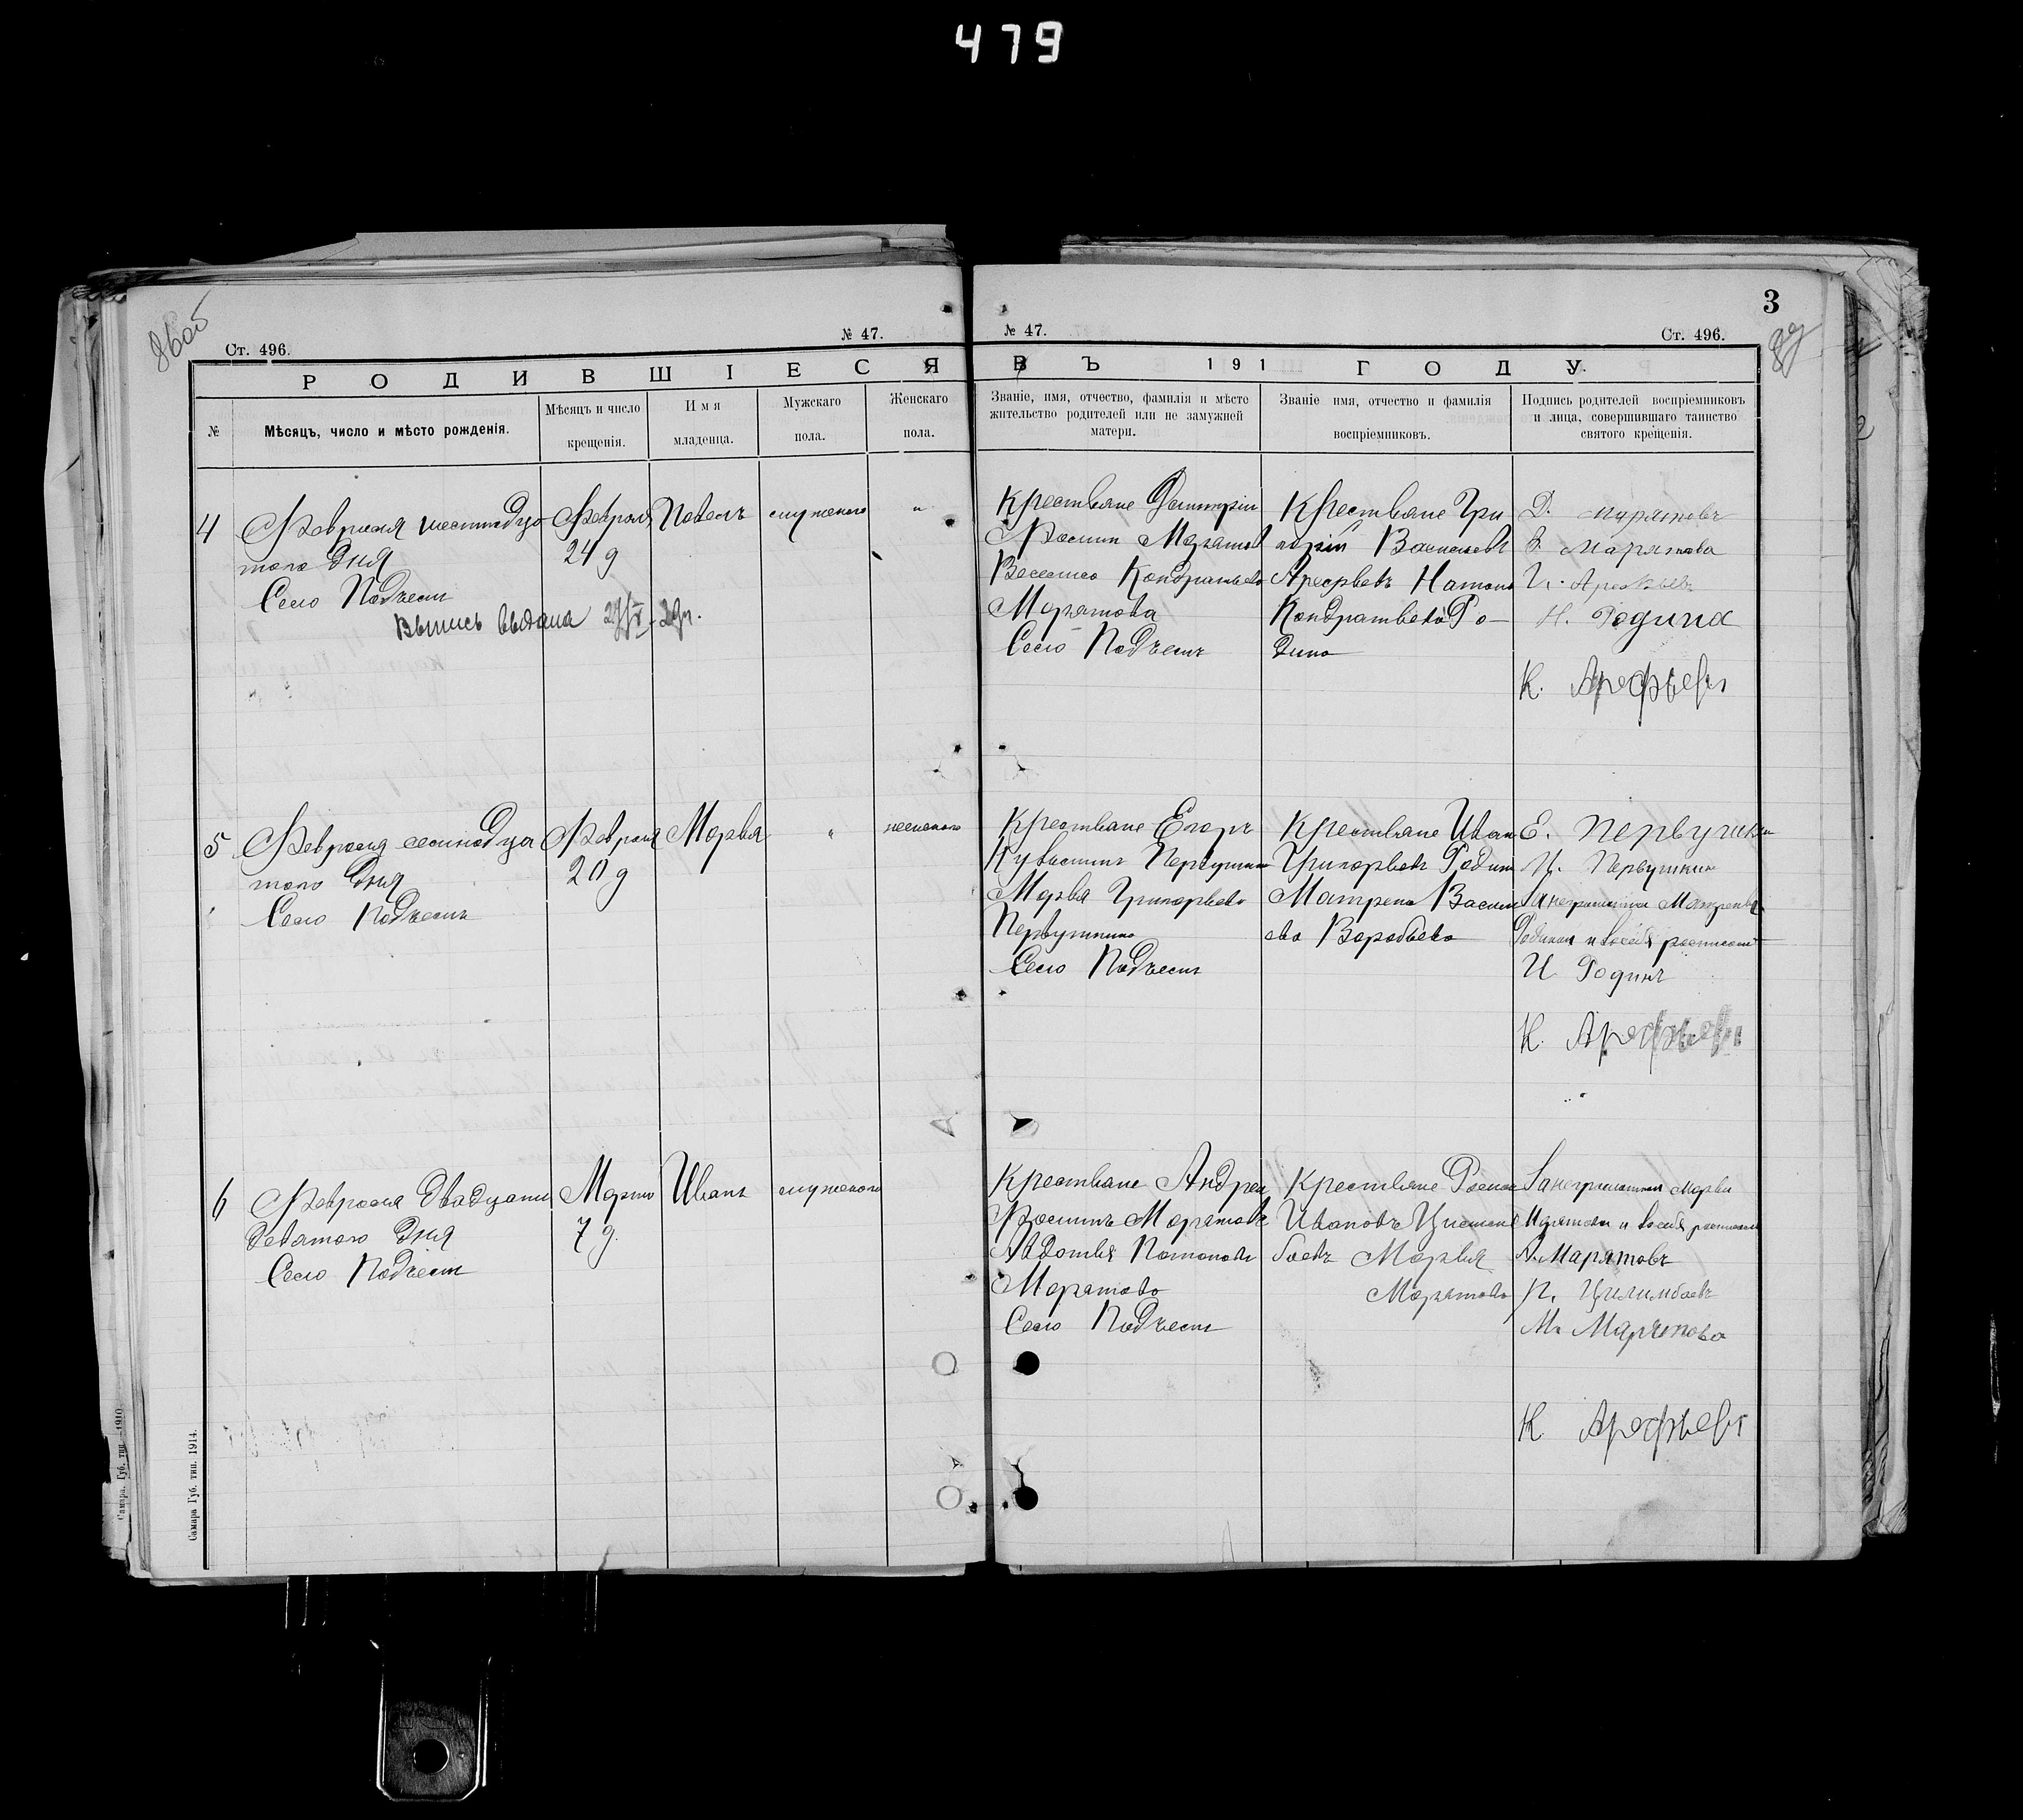 479
86об
3
87
Ст. 496.
№ 47.
№ 47.
Ст. 496.
РОДИВШІЕСЯ
ВЪ 191 ГОДУ.
№
Мѣсяцъ, число и мѣсто рожденія.
Мѣсяцъ и число
крещенія.
Имя
младенца.
Мужскаго
пола.
Женскаго
пола.
Званіе, имя, отчество, фамилія и мѣсто
жительство родителей или не замужней
матери.
Званіе имя, отчество и фамилія
воспріемниковъ.
Подпись родителей воспріемниковъ
и лица, совершившаго таинство
святого крещенія.
4
Февраля шестнадца
таго Дня
Село Подъем
Выпись выдана
Февраля
24 д
Павелъ
мужского
"
Крестьяне Димитрий
Фомин Маратов
Кондратьева
Маратова
Село Подъемъ
Крестьяне Гри
горий Васильевъ
Арефьевъ Наталья
Кондратьева Ро-
дина
Д. Муратовъ
В. Маратова
Г. Арефьевъ
Н. Родина
К. Арефьевъ
5
Февраля семнадца
таго Дня
Село Подъемъ
Февраля
20 д
Марья
"
женского
Крестьяне Егоръ
Кузьминъ Первушин
Марья Григорьева
Первушкина
Село Подъемъ
Крестьяне Иван
Григорьевъ Родин
Матрена Василь
ева Воробьева
Е. Первушин
М. Первушкин
За неграмотн Матрены
Родиной и себя росписался
И Родинъ
К. Арефьевъ
6
Февраля двадцати
девятого Дня
Село Подъем
Марта
7 д.
Иванъ
мужского
Крестьяне Андрей
Фоминъ Маратовъ
Авдотья Потапова
Маратова
Село Подъемъ
Крестьяне Роман
Ивановъ Цилим
баевъ Марья
Маратова
За неграмотн Марьи
Маратовой и себя росписался
А. Маратовъ
Р. Цилимбаевъ
М. Маратова
К Арефьевъ
Самара. Губ. тип. 1910.
Самара Губ. тип. 1914.